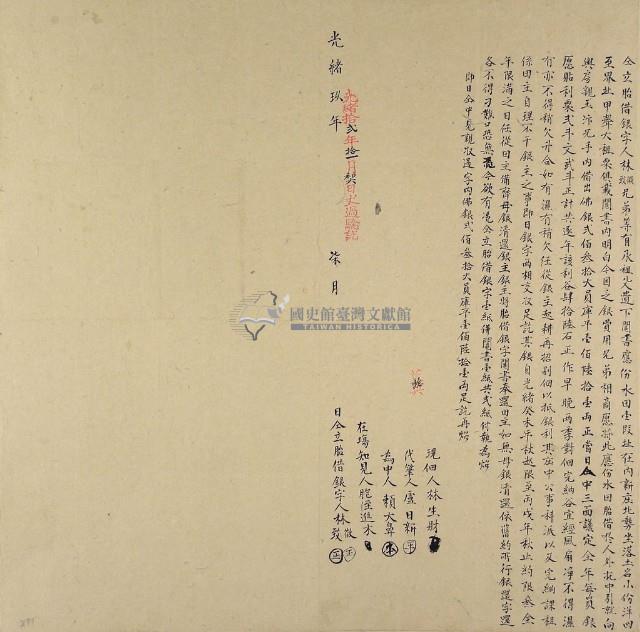 仝立胎借銀字人林緻致兄弟等有承祖父遺下鬮書應份水田壹段址在內新庄北勢坐落土名小份洋四
至界址甲聲大租業俱載鬮書內明白今因乏銀費用兄弟相商愿將此應份水田胎借於人外託中引就向
與房親玉汴兄手內借出佛銀弍佰叁拾大員庫平壹佰陸拾壹兩正當日仝中三面議定全年每員銀
愿貼利粟弍斗文弍斗正計共逐年該利谷肆拾陸石正作早晚兩季對佃完納谷宜經風扇凈不得濕
有亦不得稍欠升合如有濕有稍欠任從銀主起耕再招別佃以抵銀利其庄中公事科派以及完納課租
係田主自理不干銀主之事即日銀字兩相交收足訖其銀自光緒癸未年秋起限至丙戌年秋止約限叁全
年限滿之日任從田主備齊母銀清還銀主銀主將胎借銀字鬮書奉還田主如無母銀清還依舊約所行銀還字還
各不得刁難口恐無憑今欲有憑仝立胎借銀字壹紙併鬮書壹紙共弍紙付執為炤
即日仝中見親收過字內佛銀弍佰叁拾大員庫平壹佰陸拾壹兩足訖再炤
現佃人林生財
代筆人盧日新
為中人賴大鼻
在場知見人胞侄進木
日仝立胎借銀字人林緻致
光緒玖年
柒月
光緒拾弍年拾一月契日丈過驗訖
國史館臺灣文獻館
TAIWAN HISTORICA